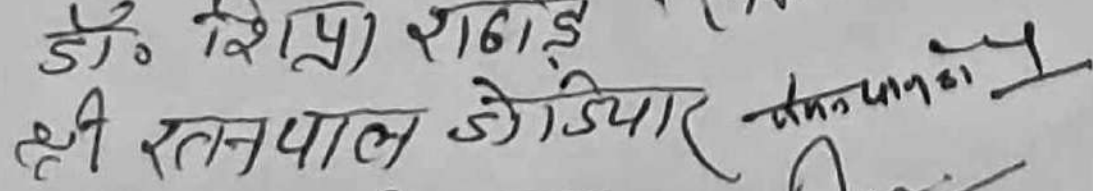 डॉ० शिप्रा राठाड़
श्री रतनपाल डोडियार